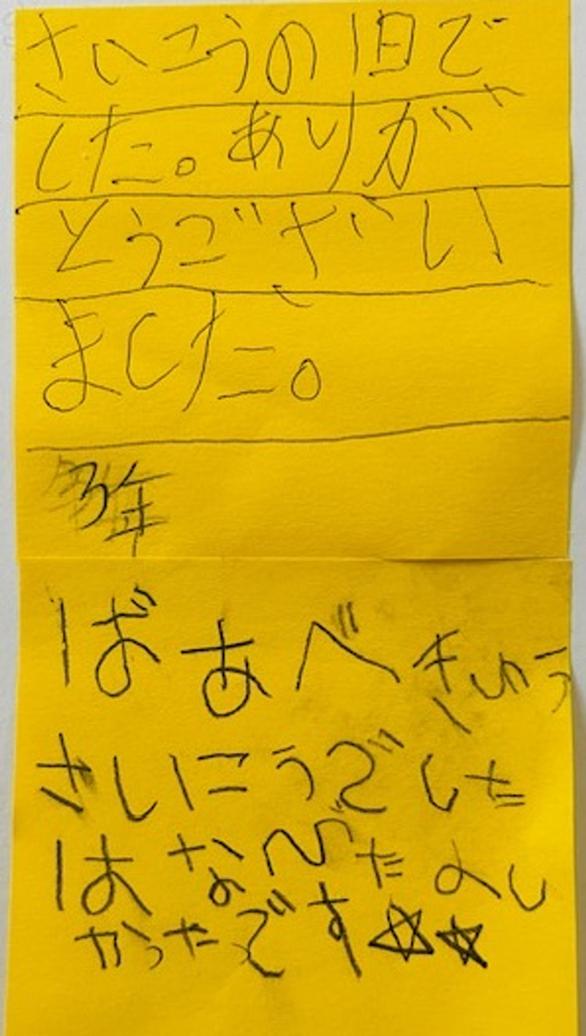 さいこうの1日で
した。ありが
とうござい
ました。
3年
ばあべきゅう
さいこうでした
はなびたのし
かったです☆☆